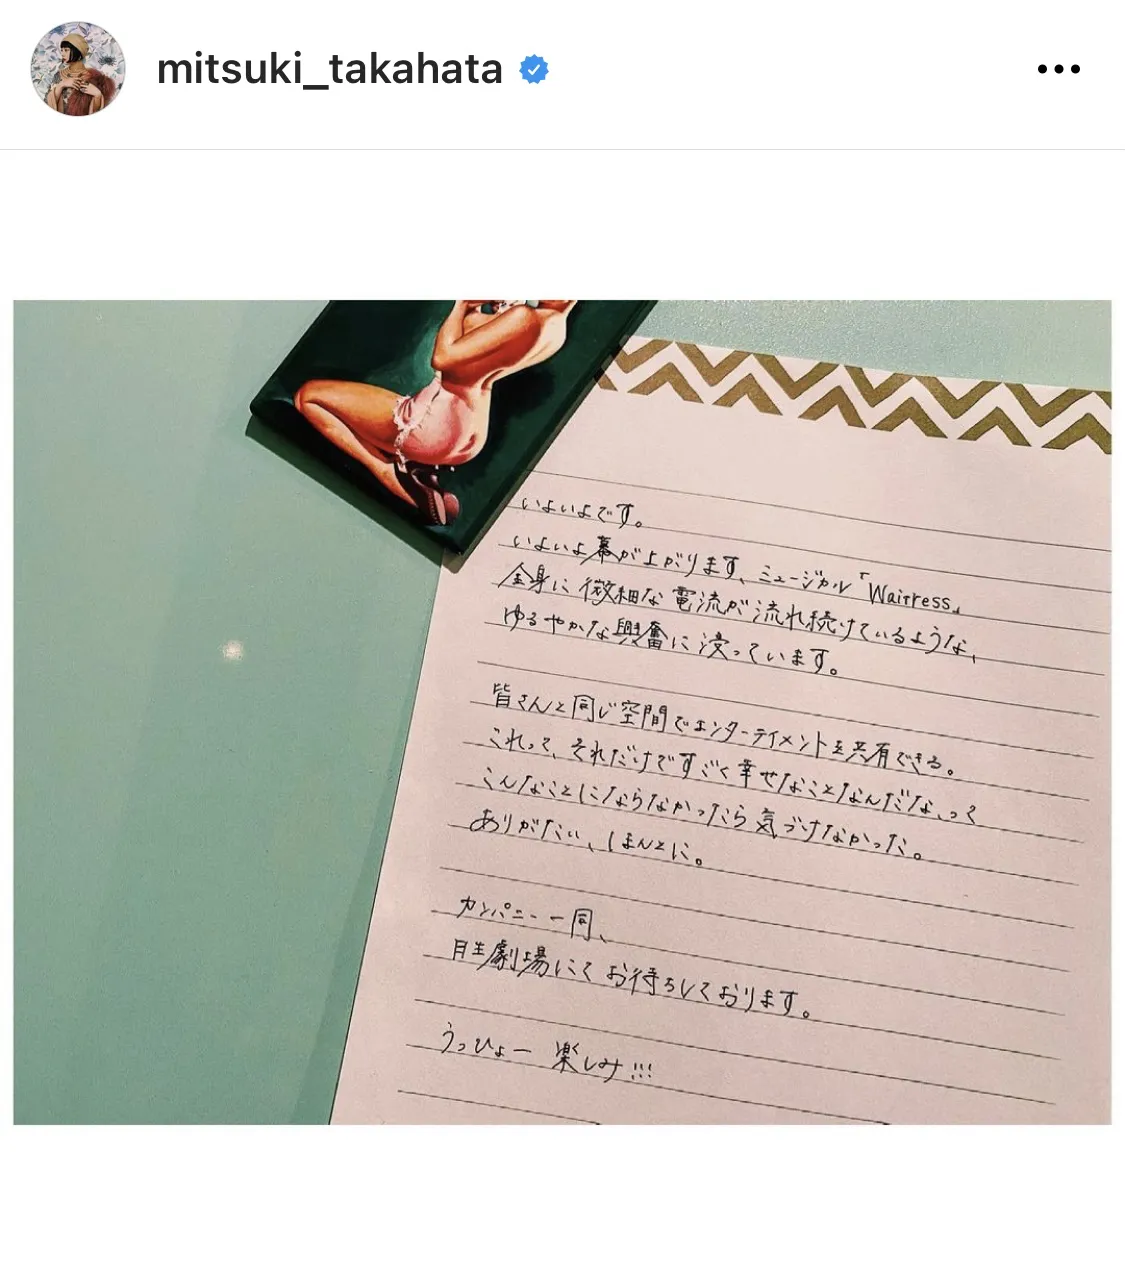 mitsuki_takahata
いよいよです。
いよいよ幕が上がります、ミュージカル「Waitress」
全身に微細な電流が流れ続けているような、
ゆるやかな興奮に浸っています。
皆さんと同じ空間でエンターテイメントを共有できる。
これって、それだけですごく幸せなことなんだな、って
こんなことにならなかったら気づけなかった。
ありがたい、ほんとに。
カンパニー一同、
日生劇場にてお待ちしております。
うっひょー 楽しみ!!!